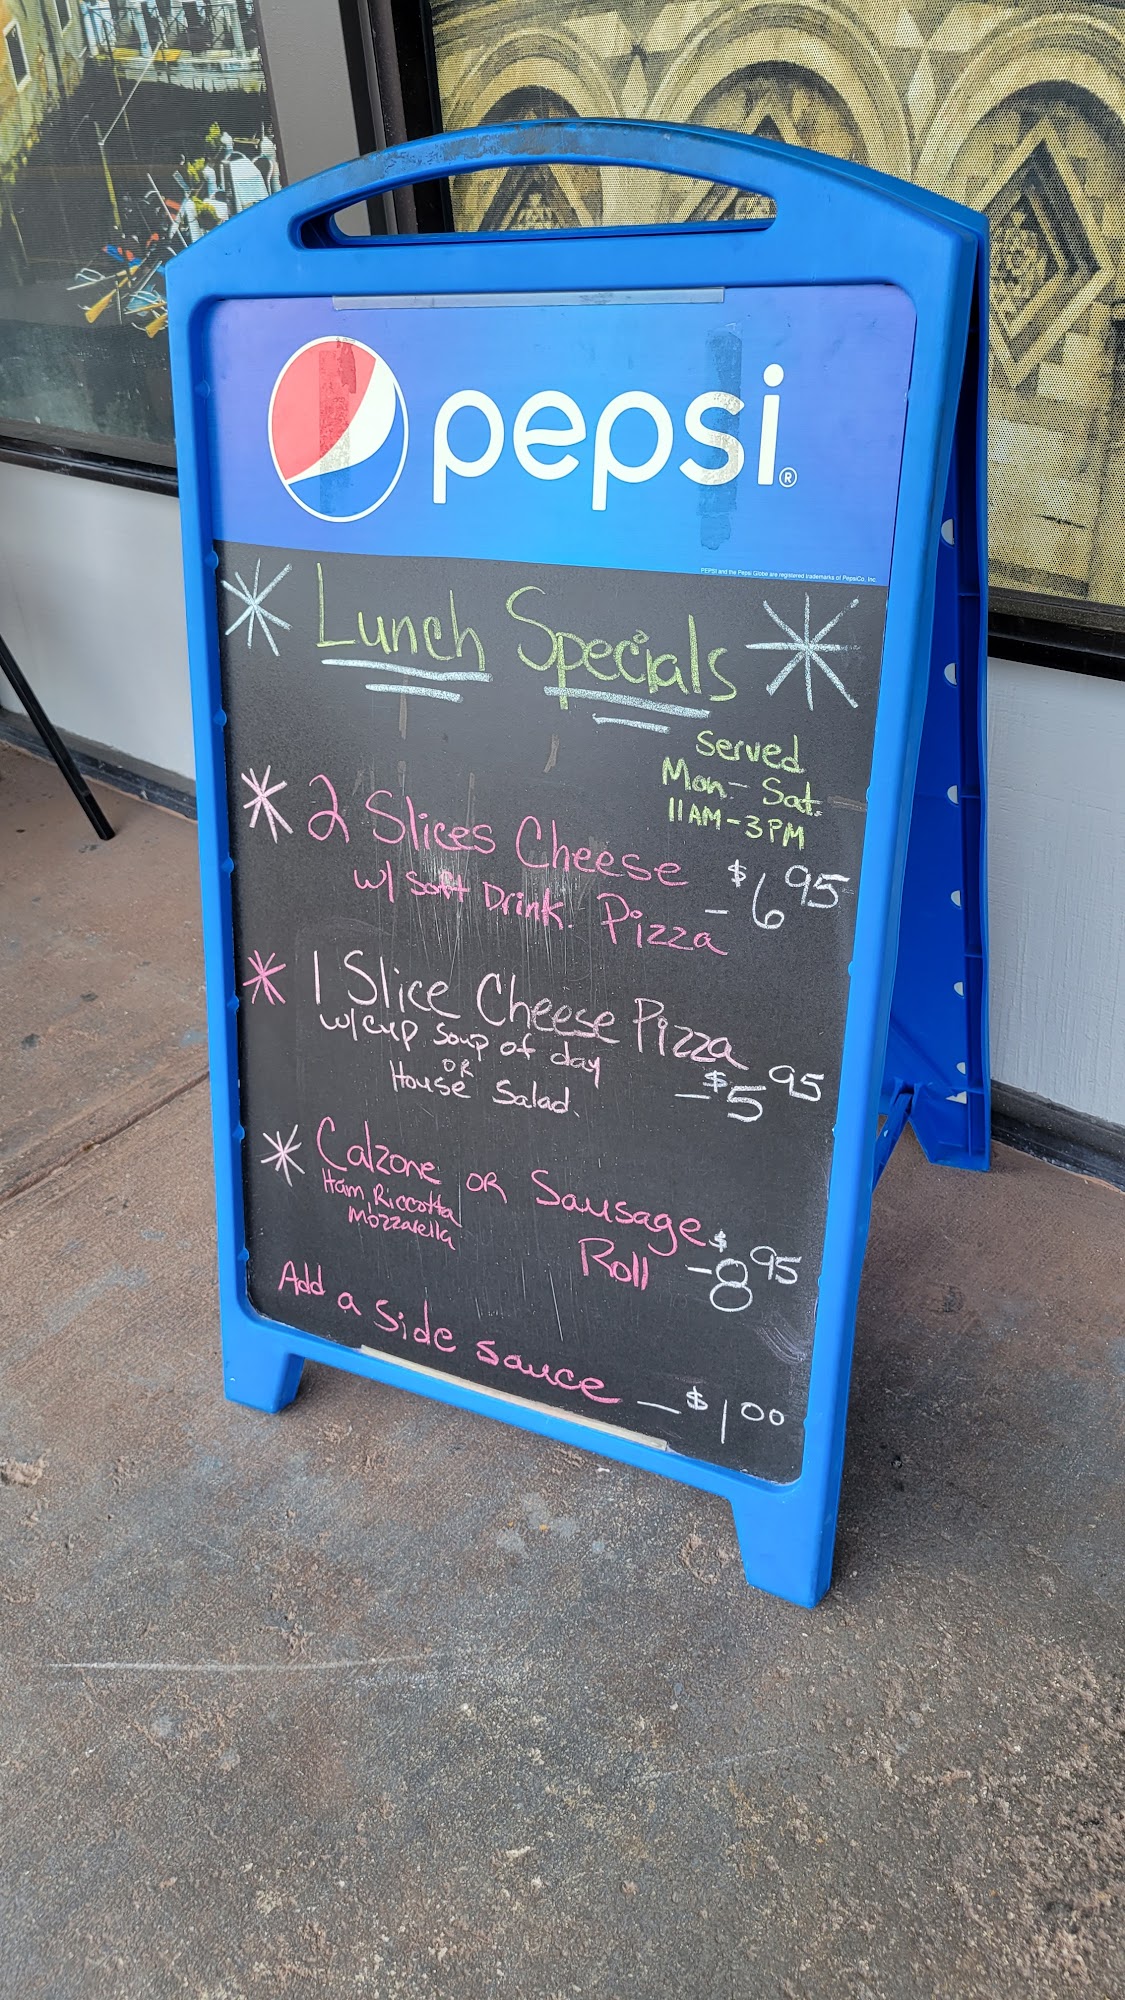 pepsi®
PEPSI and the Pepsi Globe are registered trademarks of PepsiCo, Inc.
Lunch Specials
Served
Mon.- Sat.
11AM-3PM
2 Slices Cheese
w/ soft Drink. Pizza - $6 95
1 Slice Cheese Pizza
w/cup soup of day
OR
House Salad. - $5 95
Calzone OR Sausage
Ham, Riccotta
Mozzarella
Roll - $8 95
Add a side sauce - $1 00